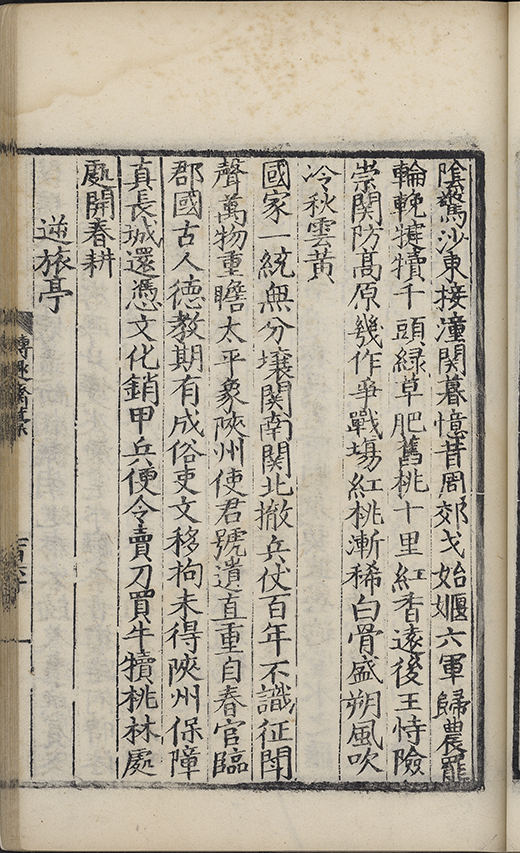 陰鷔沙東接潼関暮憶昔周郊戈始堰六軍歸農罷
輪輓犍犢千頭緑草肥舊桃十里紅香逺後王恃險
崇関防髙原幾作爭戰塲紅桃漸稀白骨盛朔風吹
冷秋雲黄
國家一統無分壤関南関北撤兵仗百年不識征鬪
聲萬物重瞻太平象陜州使君號遺直重自春官臨
郡國古人徳教期有成俗吏文移拘未得陜州保障
真長城還憑文化銷甲兵便令賣刀買牛犢桃林處
處開春耕
逆旅亭